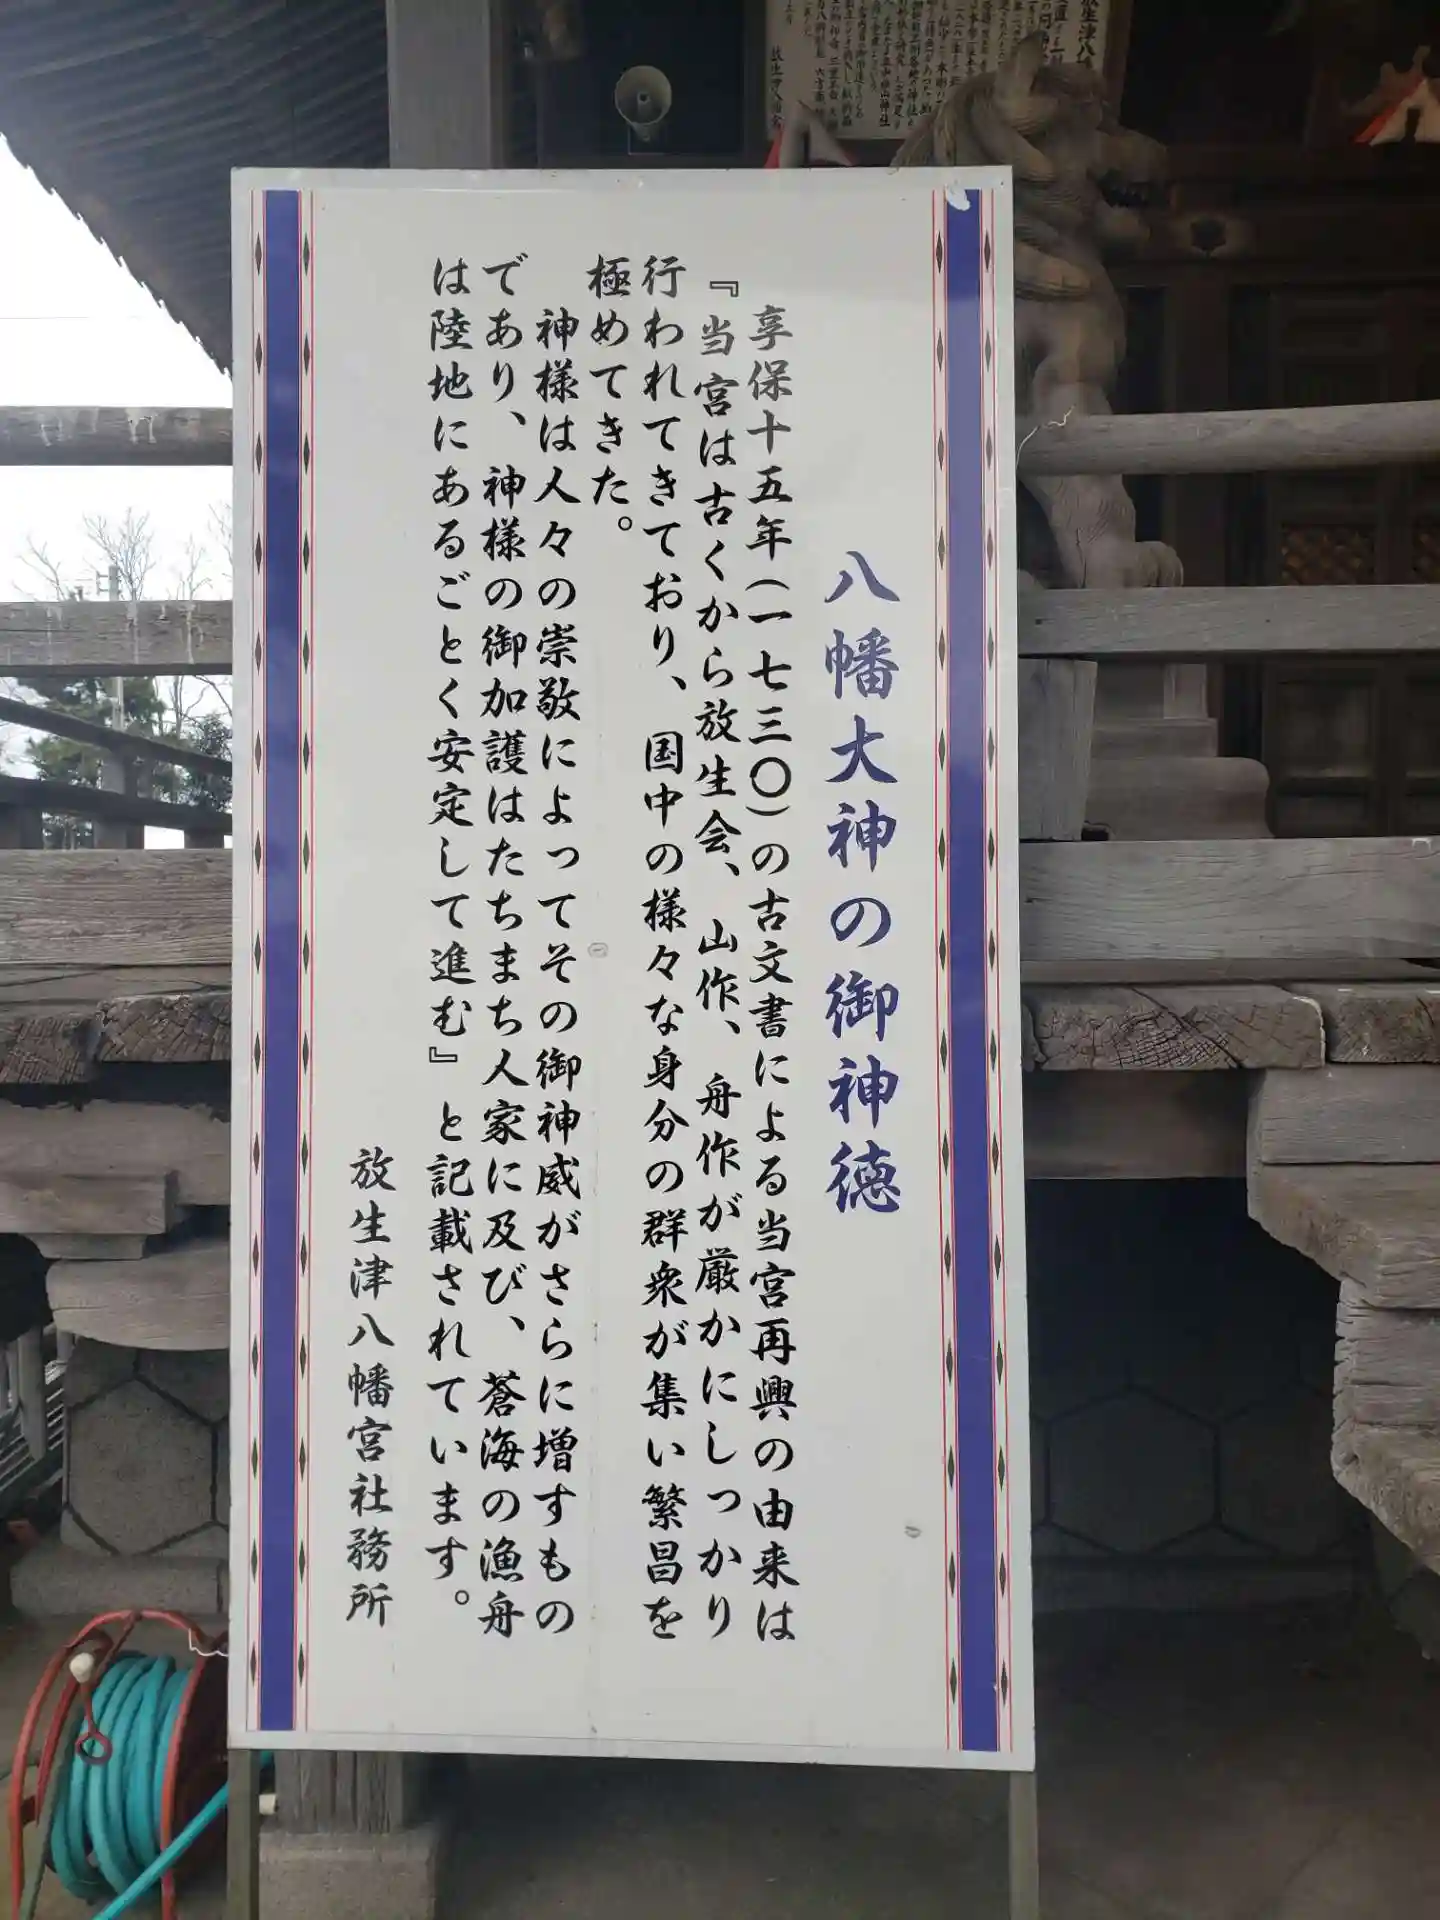 八幡大神の御神徳
享保十五年(一七三〇)の古文書による当宮再興の由来は
『当宮は古くから放生会、山作、舟作が厳かにしっかり
行われてきており、国中の様々な身分の群衆が集い繁昌を
極めてきた。
神様は人々の崇敬によってその御神威がさらに増すもの
であり、神様の御加護はたちまち人家に及び、蒼海の漁舟
は陸地にあるごとく安定して進む』と記載されています。
放生津八幡宮社務所